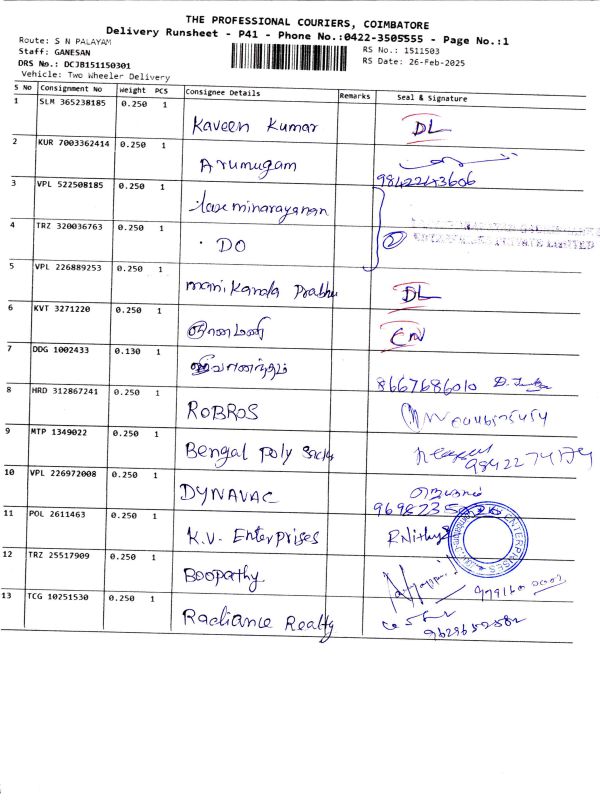 THE PROFESSIONAL COURIERS, COIMBATORE
Delivery Runsheet - P41 - Phone No.:0422-3505555 - Page No.:1
Route: S N PALAYAM
Staff: GANESAN
DRS No.: DCJB151150301
Vehicle: Two Wheeler Delivery
RS No.: 1511503
RS Date: 26-Feb-2025
S No Consignment No Weight PCS Consignee Details Remarks Seal & Signature
1 SLM 365238185 0.250 1 Kaveen Kumar DL
2 KUR 7003362414 0.250 1 Arumugam 9842243606
3 VPL 522508185 0.250 1 laxminarayanan
4 TRZ 320036763 0.250 1 DO 2
5 VPL 226889253 0.250 1 mani Kanda Prabhu DL
6 KVT 3271220 0.250 1 ஞானமணி
7 DDG 1002433 0.130 1 சிவானந்தம் 8667686010
8 HRD 312867241 0.250 1 ROBROS
9 MTP 1349022 0.250 1 Bengal Poly Sacks
10 VPL 226972008 0.250 1 DYNAVAC
11 POL 2611463 0.250 1 K.V. Enterprises R.Nithya
12 TRZ 25517909 0.250 1 Boopathy
13 TCG 10251530 0.250 1 Radiance Realty 9629652582